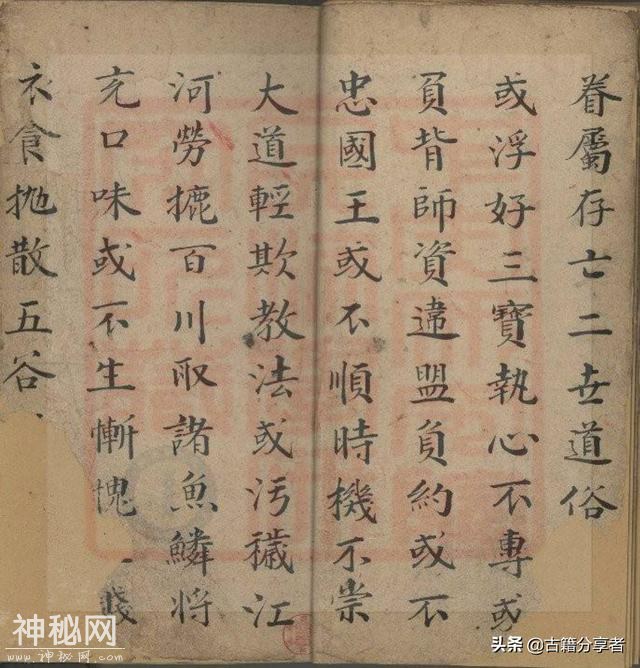 眷屬存亡二世道俗
或浮好三寶執心不專或
負背師資違盟負約或不
忠國王或不順時機不崇
大道輕欺教法或污穢江
河勞摝百川取諸魚鱗將
充口味或不生慚愧
衣食抛散五谷
神秘网
WWW.神秘网.COM
头条 @古籍分享者